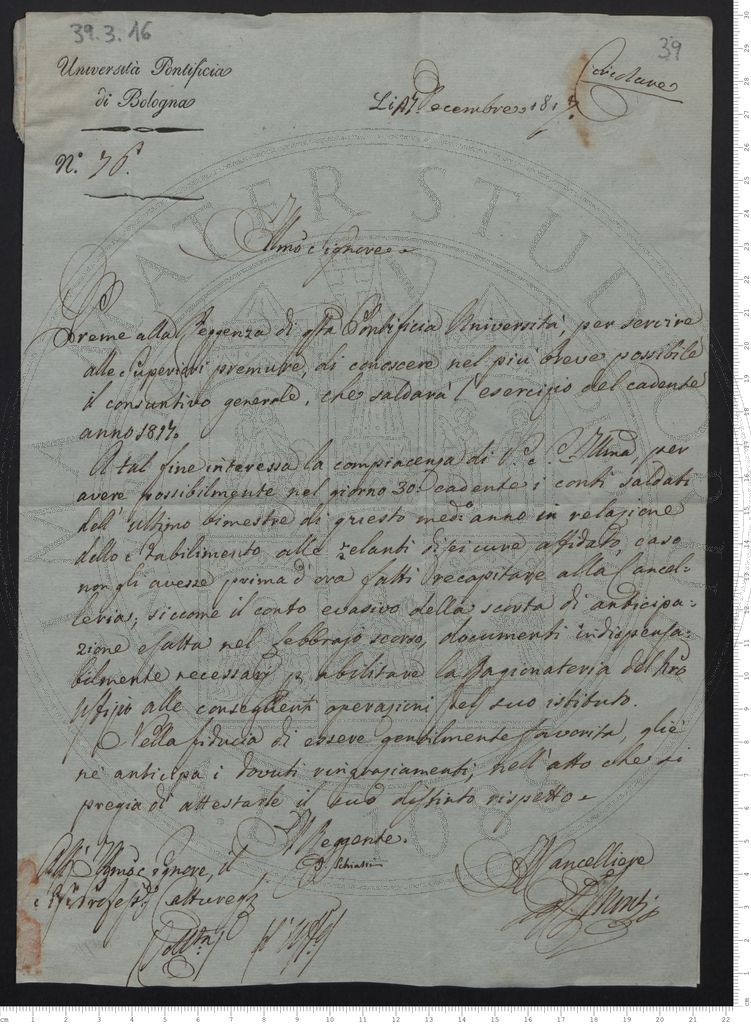 39.3.16
39
Università Pontificia
di Bologna
Circolare
Li 17 Decembre 1817.
N.° 76.
Illmo Signore
Preme alla Reggenza di qta Pontificia Università, per servire
alle Superiori premure, di conoscere nel più breve possibile
il consuntivo generale, che salderà l'esercizio del cadente
anno 1817.
A tal fine interessa la compiacenza di V. S. Illma per
avere possibilmente nel giorno 30. cadente i conti saldati
dell' ultimo bimestre di questo med.o anno in relazione
dello Stabilimento alle zelanti di Lei cure affidato, caso
non gli avesse prima d'ora fatti recapitare alla Cancel=
leria; siccome il conto evasivo della scorta di anticipa=
zione esatta nel febbrajo scorso, documenti indispensa=
bilmente necessarj p abilitare la Ragionateria del pro
Uffizio alle conseguenti operazioni del suo istituto.
Nella fiducia di essere gentilmente favorita, gliè
ne anticipa i dovuti ringraziamenti, nell'atto che si
pregia di attestarle il suo distinto rispetto
Il Reggente.
D. Schiassi
All' Illmo Signore, il
Sig. Professe Catturegli
Il Cancelliere